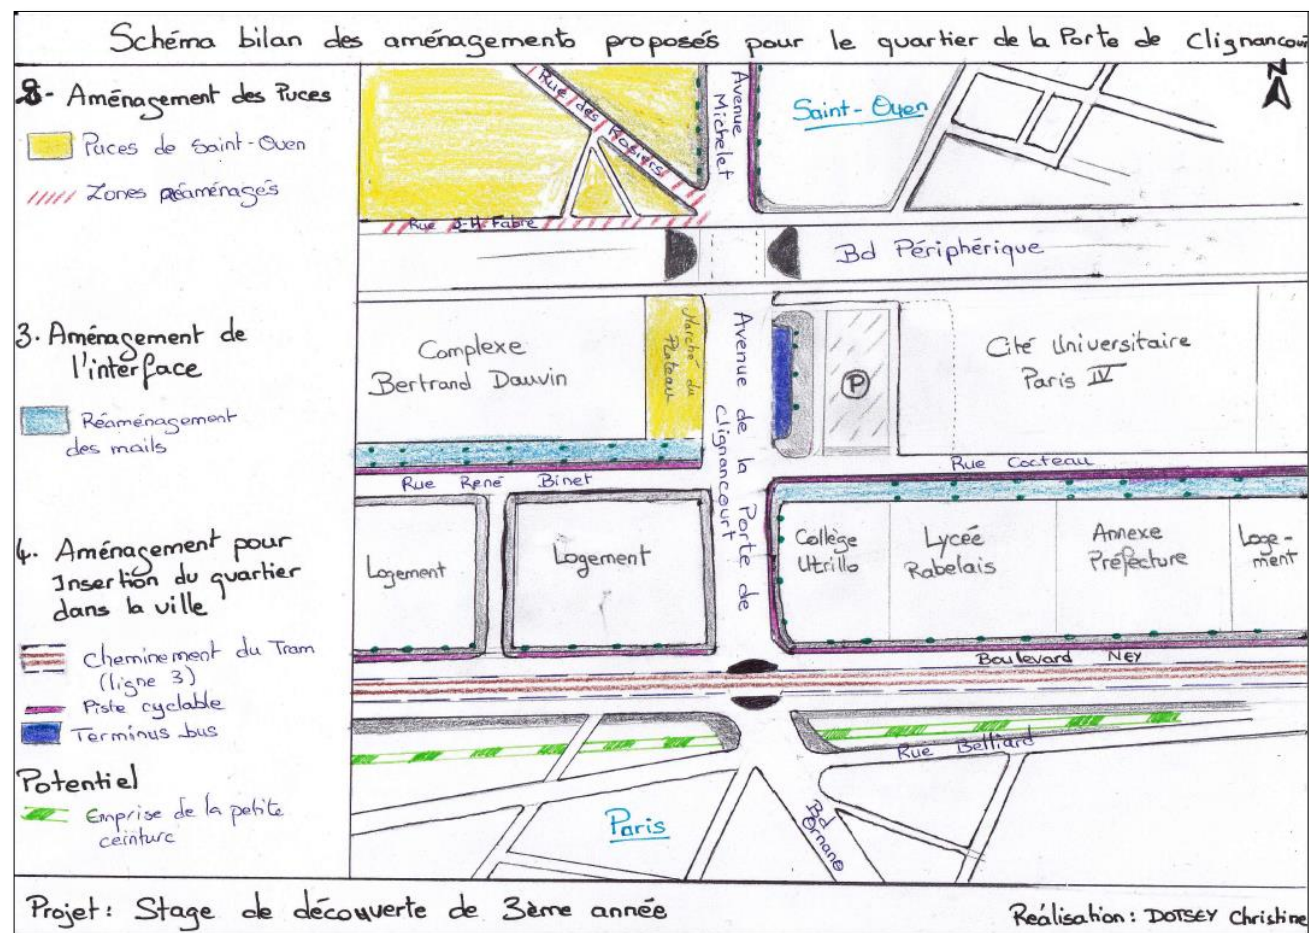 Schéma bilan des aménagements proposés pour le quartier de la Porte de Clignancour
N
2- Aménagement des Puces
Puces de Saint-Ouen
Zones réaménagés
3. Aménagement de
l'interface
Réaménagement
des mails
4. Aménagement pour
Insertion du quartier
dans la ville
Cheminement du Tram
(ligne 3)
Piste cyclable
Terminus bus
Potentiel
Emprise de la petite
ceinture
Rue des Rosiers
Avenue
Michelet
Saint-Ouen
Rue J-H. Fabre
Bd Périphérique
Complexe
Bertrand Dauvin
Marché du
Plateau
Avenue de la Porte de
Clignancourt
P
Cité Universitaire
Paris IV
Rue Cocteau
Rue René Binet
Logement
Logement
Collège
Utrillo
Lycée
Rabelais
Annexe
Préfecture
Loge-
ment
Boulevard Ney
Rue Belliard
Paris
Bd
Ornano
Projet: Stage de découverte de 3ème année
Réalisation: DOTSEY Christine